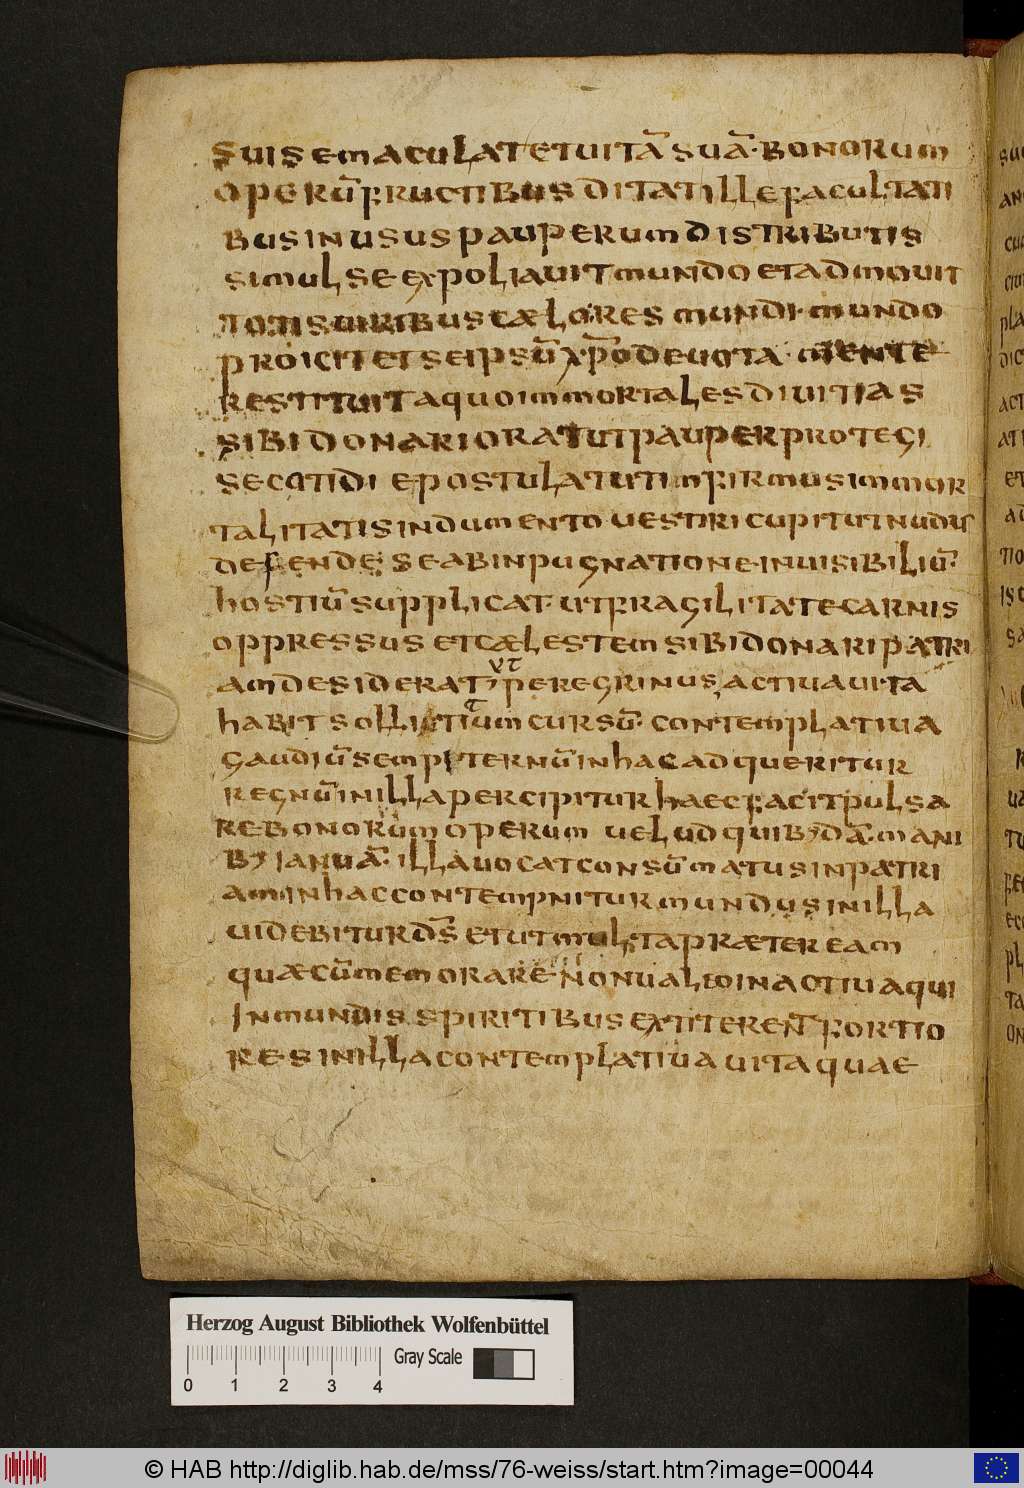 SUISEMACULATETUITĀSUĀ·BONORUM
OPERŪFRUCTIBUSDITATILLEFACULTATI
BUSINUSUSPAUPERUMDISTRIBUTIS
SIMULSEEXPOLIAUITMUNDOETADMOUIT
TOTISUIRIBUSCÆLO·RESMUNDI·MUNDO
PROICITETSEIPSŪXP̄ODEUOTA·MENTE
RESTITUITAQUOIMMORTALESDIUITIAS
SIBIDONARIORATUTPAUPERPROTEGI
SECOTIDIEPOSTULATUTIMFIRMUSIMMOR
TALITATISINDUMENTOUESTIRICUPITUTNUDUS
DEFENDESEABINPUGNATIONE·INUISIBILIŪ·
HOSTIŪSUPPLICAT·UTFRAGILITATECARNIS
OPPRESSUSETCÆLESTEMSIBIDONARIPATRI
AMDESIDERAT VT PEREGRINUS,ACTIUAUITA
HABITSOLLICITIUMCURSŪ·CONTEMPLATIUA
GAUDIŪSEMPITERNŪINHACADQUERITUR
REGNŪINILLAPERCIPITURHAECFACITPULSA
REBONORUMOPERUM UELUDQUIBꝫDĀ·MANI
BꝫIANUĀ·ILLAUOCATCONSŪMATUSINPATRI
AMINHACCONTEMPNITURMUNDUSINILLA
UIDEBITURDS̄ETUTMULTAPRÆTEREAM
QUÆCŪMEMORARENONUALEOINACTIUAQUI
INMUNDISSPIRITIBUSEXTITERENTFORTIO
RESINILLACONTEMPLATIUAUITAQUAE
Herzog August Bibliothek Wolfenbüttel
Gray Scale
0 1 2 3 4
© HAB http://diglib.hab.de/mss/76-weiss/start.htm?image=00044